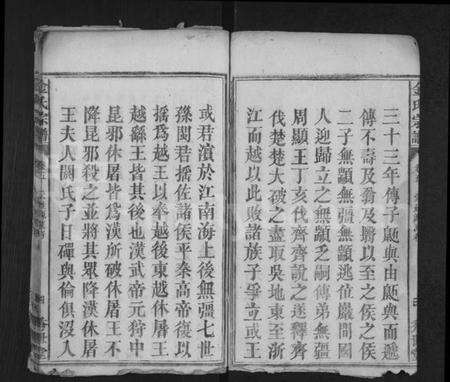 三十三年傳子鼫與由鼫與而遞
傳不壽及翁及翳以至之侯之侯
二子無顓無疆無顓逃位嚴問國
人迎歸立之無顓乏嗣傳弟無彊
周顯王丁亥伐齊齊說之遂釋齊
伐楚楚大破之盡取吳地東至浙
江而越以此敗諸族子爭立或王
或君濱於江南海上後無彊七世
孫閩君搖佐諸侯平秦高帝復以
搖為越王以奉越後東越休屠王
越繇王皆其後也漢武帝元狩中
昆邪休屠皆為漢所破休屠王不
降昆邪殺之並將其眾降漢休屠
王夫人閼氏子日磾與倫俱沒入
金氏宗譜